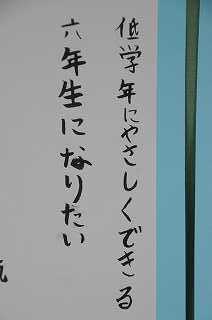 低学年にやさしくできる
六年生になりたい